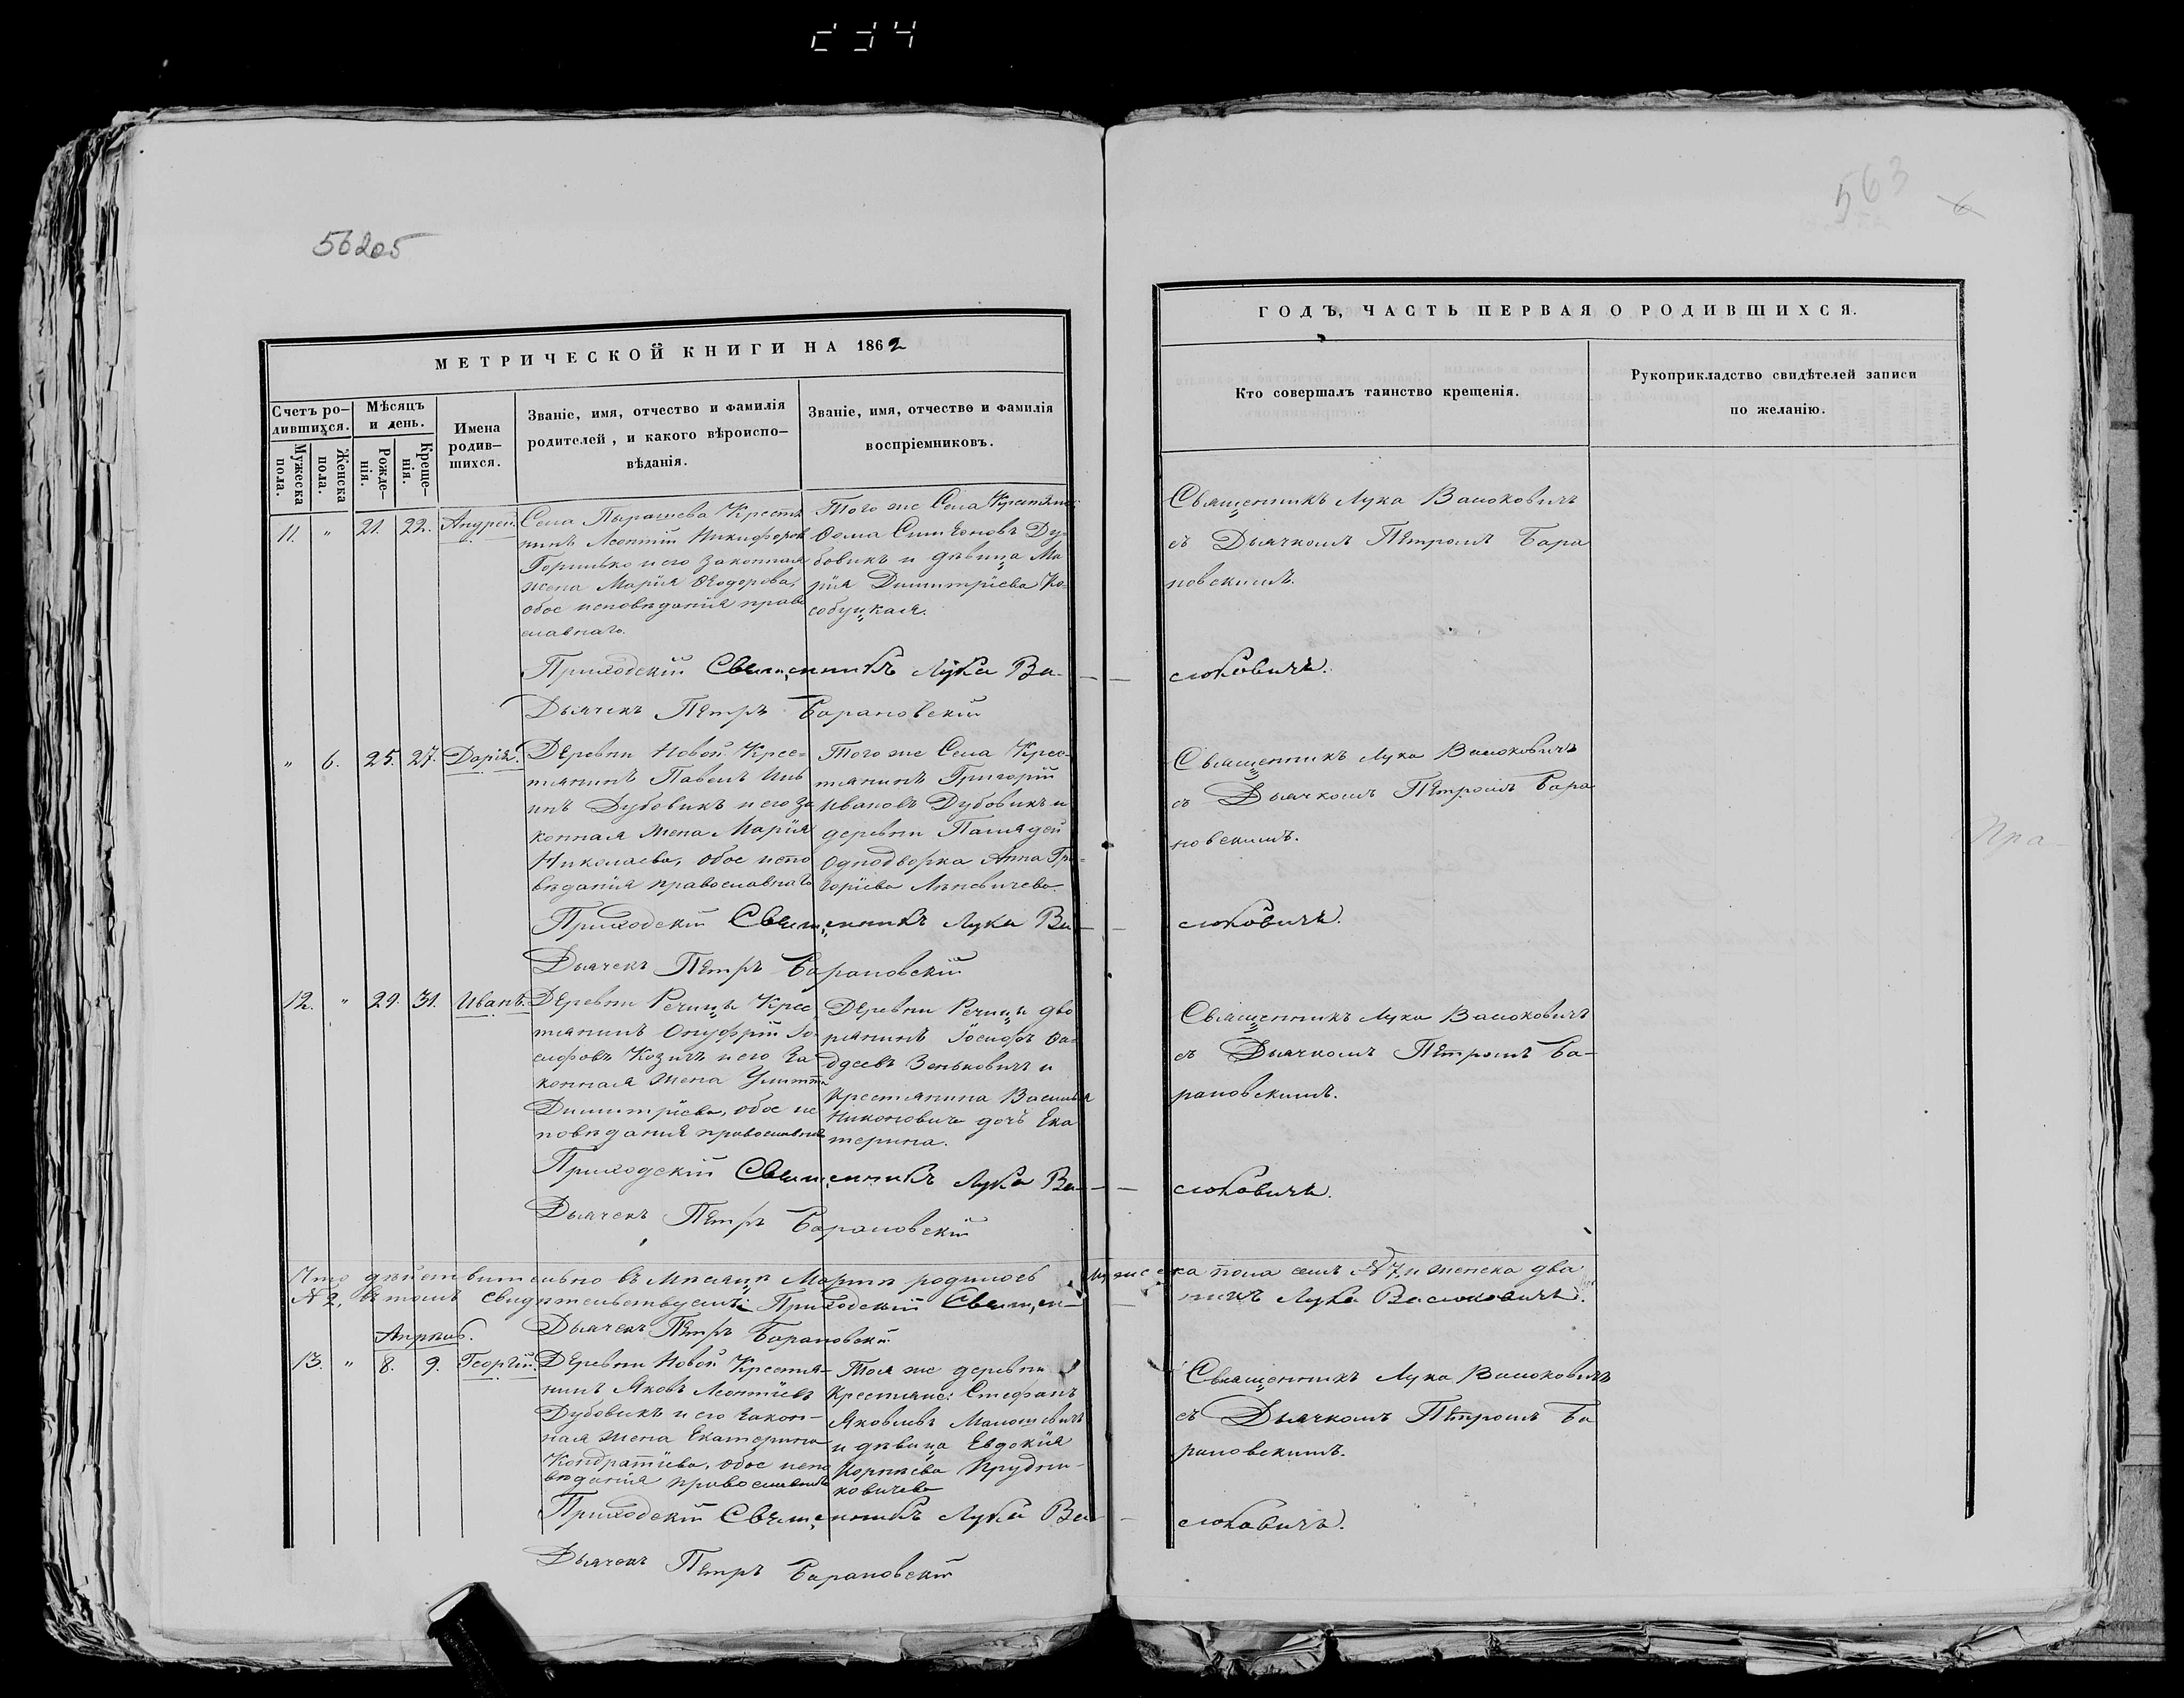 563
6
56205
МЕТРИЧЕСКОЙ КНИГИ НА 1862
Счетъ ро-
дившихся.
Мужеска
пола.
Женска
пола.
Мѣсяцъ
и день.
Рожде-
нія.
Креще-
нія.
Имена
родив-
шихся.
Званіе, имя, отчество и фамилія
родителей, и какого вѣроиспо-
вѣданія.
Званіе, имя, отчество и фамилія
воспріемниковъ.
ГОДЪ, ЧАСТЬ ПЕРВАЯ О РОДИВШИХСЯ.
Кто совершалъ таинство крещенія.
Рукоприкладство свидѣтелей записи
по желанію.
11. " 21. 22. Андрей.
Села Пырашева Крестья
нинъ Леонтій Никифоров
и его законная
жена Марія Ѳеодорова,
обое исповѣданія право
славнаго.
Того же Села Крестьяне:
Ѳома Симеоновъ Ду-
бовикъ и дѣвица Ма
рія Димитріева Ко-
собуцкая.
Священникъ Лука Васюковичъ
съ Дьячкомъ Петромъ Бара
новскимъ.
Приходскій Священникъ Лука Ва-
сюковичъ.
Дьячекъ Петръ Барановскій
" 6. 25. 27. Дарія.
Деревни Новой Крес=
тьянинъ Павелъ
Дубовикъ и его за
конная жена Марія
Николаева, обое испо
вѣданія православнаго
Того же Села Крес-
тьянинъ Григорій
Ивановъ Дубовикъ и
деревни
Однодворка Анна Гри-
горіева
Священникъ Лука Васюковичъ
съ Дьячкомъ Петромъ Бара
новскимъ.
Пра
Приходскій Священникъ Лука Ва-
сюковичъ.
Дьячекъ Петръ Барановскій
12. " 29. 31. Иванъ.
Деревни Речицы Крес
тьянинъ Онуфрій Іо-
сифовъ Козичъ и его за
конная жена
Димитріева, обое ис
повѣданія православна
Деревни Речицы дво
рянинъ Іосифъ Ѳа-
дѣевъ Зеньковичъ и
Крестьянина Василья
Никоновича дочь Ека
терина.
Священникъ Лука Васюковичъ
съ Дьячкомъ Петромъ Ба-
рановскимъ.
Приходскій Священникъ Лука Ва-
сюковичъ.
Дьячекъ Петръ Барановскій
Что дѣйствительно въ Мѣсяцѣ Мартѣ родилось мужеска пола семь № 7, и женска два
№ 2, въ томъ свидѣтельствуемъ: Приходскій Священ-
никъ Лука Васюковичъ.
Дьячекъ Петръ Барановскій
Апрѣль.
13. " 8. 9. Георгій.
Деревни Новой Крестья-
нинъ Яковъ Леонтіевъ
Дубовикъ и его закон-
ная жена Екатерина
Кондратіева, обое испо
вѣданія православнаго
Тоя же деревни
Крестьяне: Стефанъ
Яковлевъ
и дѣвица Евдокія
Корнѣева Прудни-
ковичева
Священникъ Лука Васюковичъ
съ Дьячкомъ Петромъ Ба
рановскимъ.
Приходскій Священникъ Лука Ва-
сюковичъ.
Дьячекъ Петръ Барановскій